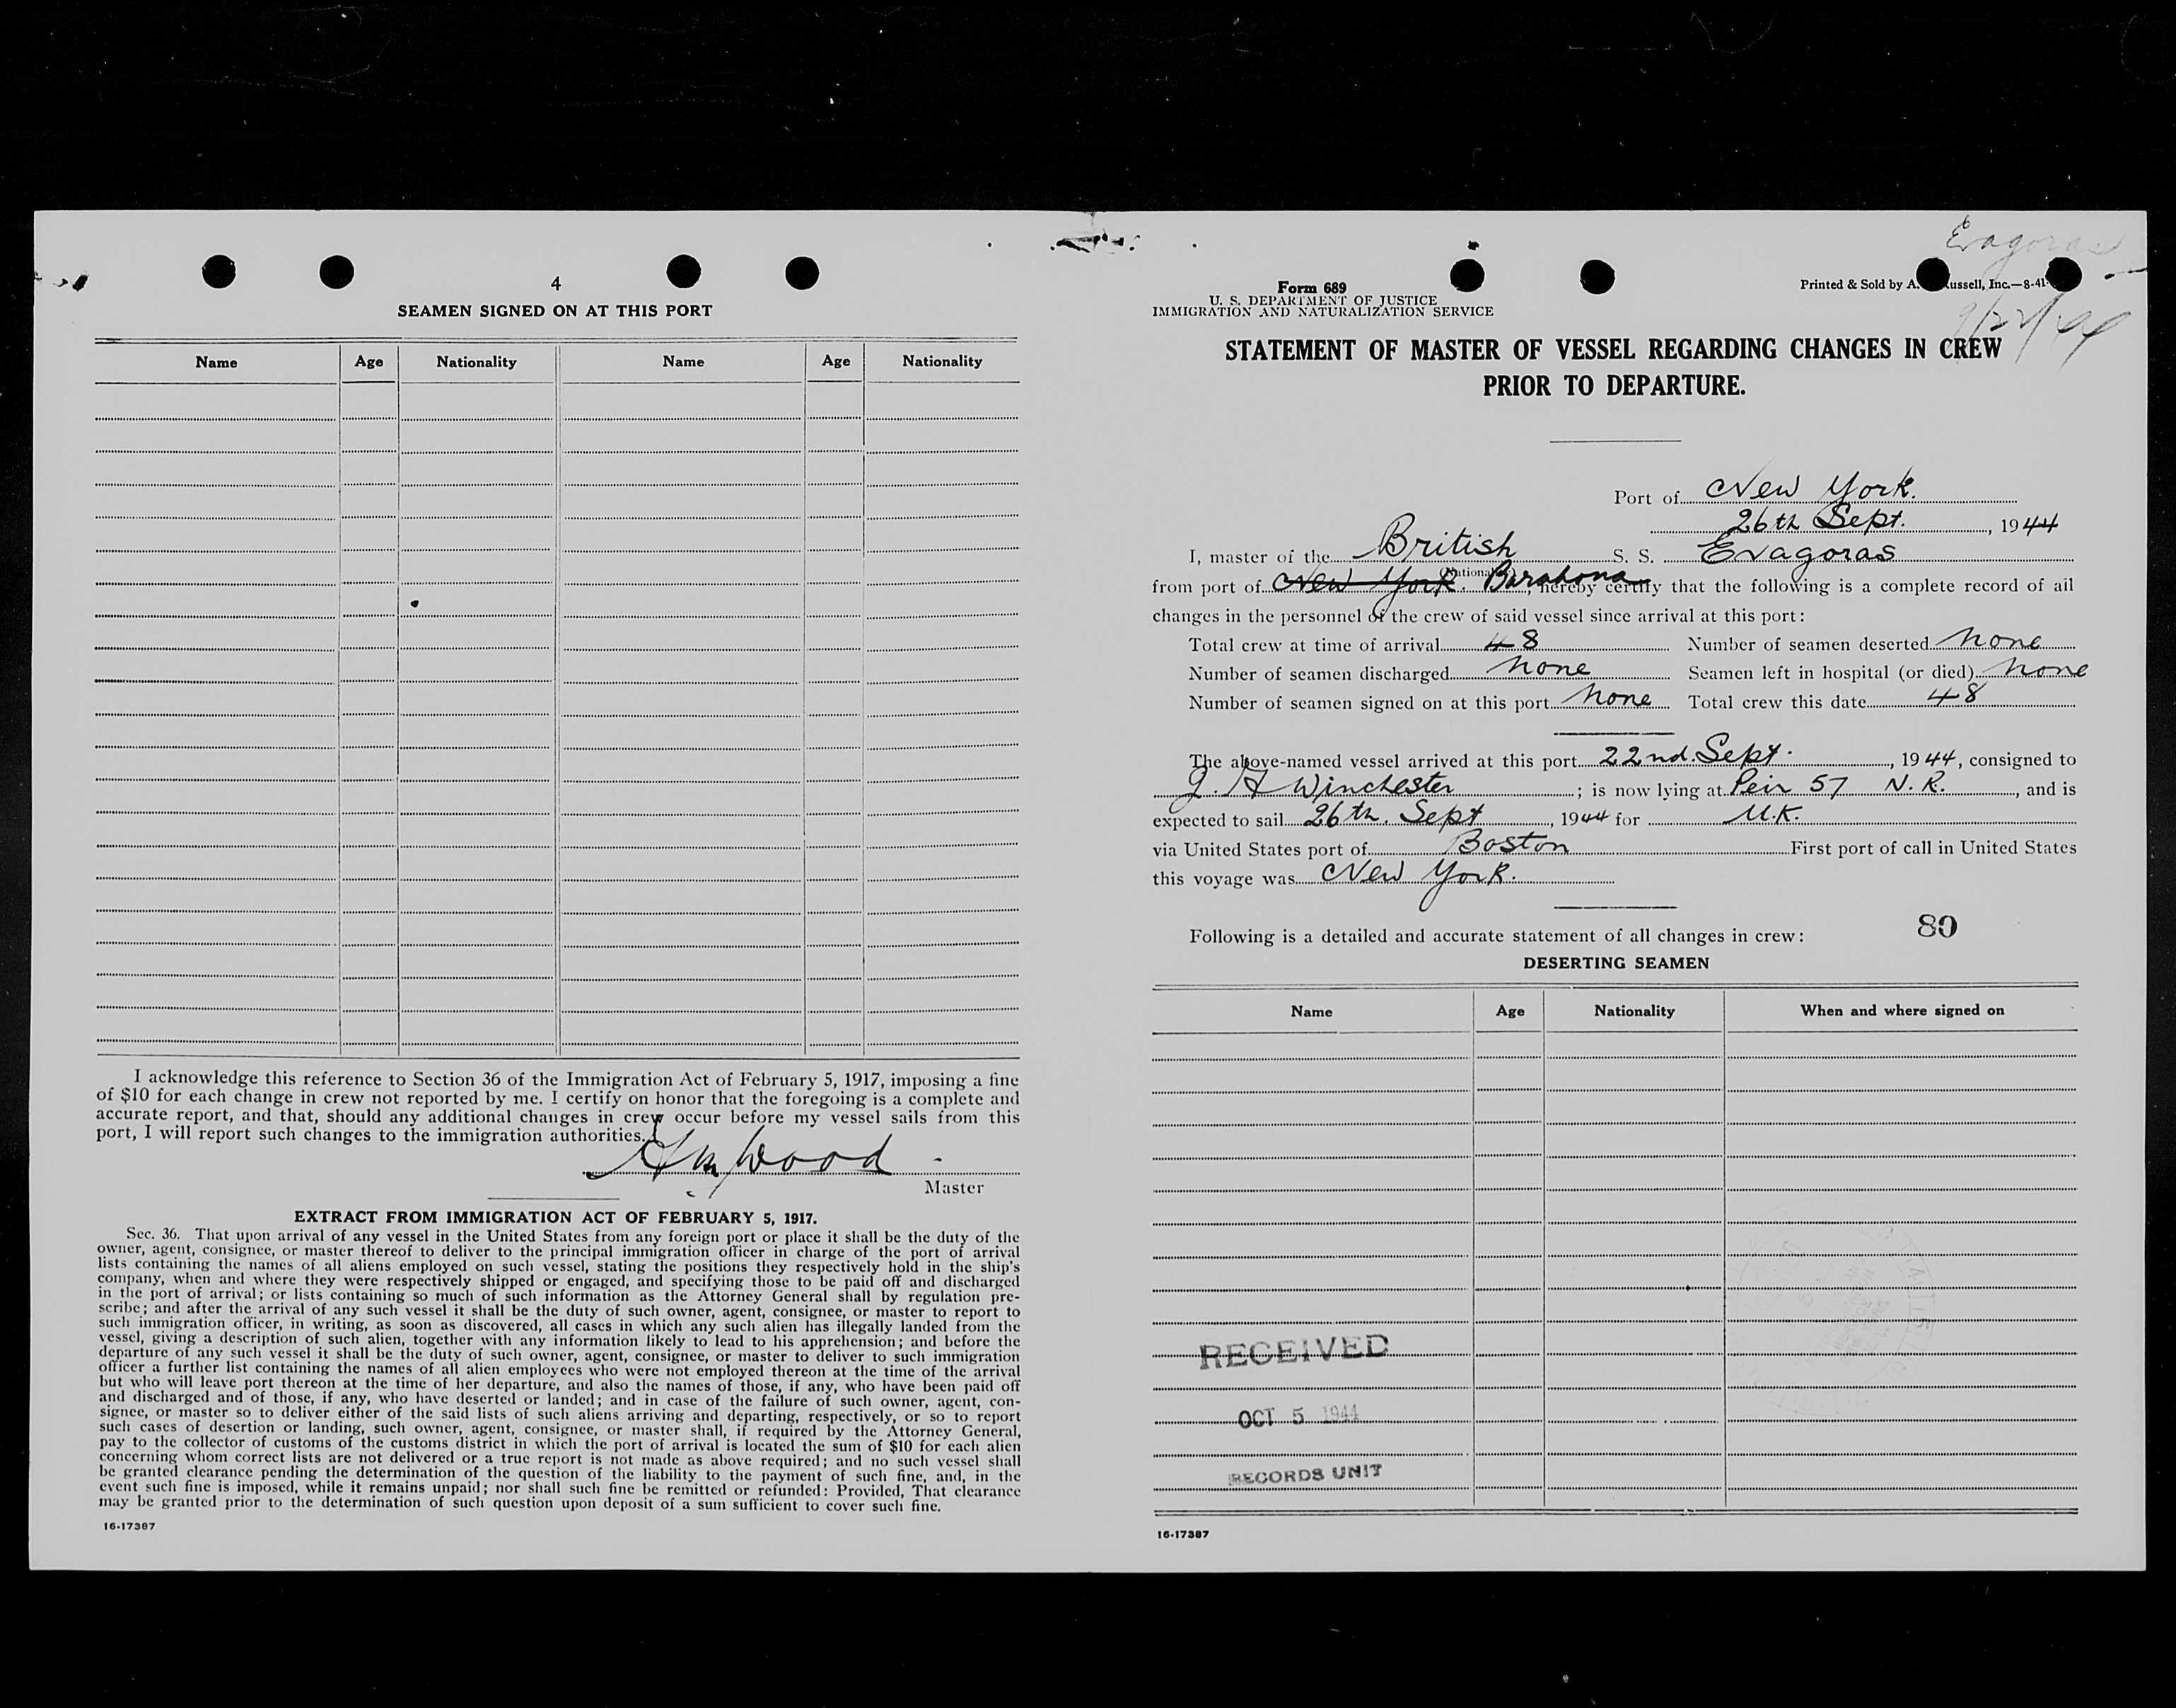 4
SEAMEN SIGNED ON AT THIS PORT
Name Age Nationality Name Age Nationality
I acknowledge this reference to Section 36 of the Immigration Act of February 5, 1917, imposing a fine
of $10 for each change in crew not reported by me. I certify on honor that the foregoing is a complete and
accurate report, and that, should any additional changes in crew occur before my vessel sails from this
port, I will report such changes to the immigration authorities.
Wood
Master
EXTRACT FROM IMMIGRATION ACT OF FEBRUARY 5, 1917.
Sec. 36. That upon arrival of any vessel in the United States from any foreign port or place it shall be the duty of the
owner, agent, consignee, or master thereof to deliver to the principal immigration officer in charge of the port of arrival
lists containing the names of all aliens employed on such vessel, stating the positions they respectively hold in the ship's
company, when and where they were respectively shipped or engaged, and specifying those to be paid off and discharged
in the port of arrival; or lists containing so much of such information as the Attorney General shall by regulation pre-
scribe; and after the arrival of any such vessel it shall be the duty of such owner, agent, consignee, or master to report to
such immigration officer, in writing, as soon as discovered, all cases in which any such alien has illegally landed from the
vessel, giving a description of such alien, together with any information likely to lead to his apprehension; and before the
departure of any such vessel it shall be the duty of such owner, agent, consignee, or master to deliver to such immigration
officer a further list containing the names of all alien employees who were not employed thereon at the time of the arrival
but who will leave port thereon at the time of her departure, and also the names of those, if any, who have been paid off
and discharged and of those, if any, who have deserted or landed; and in case of the failure of such owner, agent, con-
signee, or master so to deliver either of the said lists of such aliens arriving and departing, respectively, or so to report
such cases of desertion or landing, such owner, agent, consignee, or master shall, if required by the Attorney General,
pay to the collector of customs of the customs district in which the port of arrival is located the sum of $10 for each alien
concerning whom correct lists are not delivered or a true report is not made as above required; and no such vessel shall
be granted clearance pending the determination of the question of the liability to the payment of such fine, and, in the
event such fine is imposed, while it remains unpaid; nor shall such fine be remitted or refunded: Provided, That clearance
may be granted prior to the determination of such question upon deposit of a sum sufficient to cover such fine.
16-17387
Evagoras
Form 689
U. S. DEPARTMENT OF JUSTICE
IMMIGRATION AND NATURALIZATION SERVICE
Printed & Sold by A. ussell, Inc.—8-41
9/22/44
STATEMENT OF MASTER OF VESSEL REGARDING CHANGES IN CREW
PRIOR TO DEPARTURE.
Port of New York.
26th Sept., 1944
I, master of the British S. S. Evagoras
(Nationality)
from port of New York. Barahona, hereby certify that the following is a complete record of all
changes in the personnel of the crew of said vessel since arrival at this port:
Total crew at time of arrival 48 Number of seamen deserted None
Number of seamen discharged None Seamen left in hospital (or died) None
Number of seamen signed on at this port None Total crew this date 48
The above-named vessel arrived at this port 22nd. Sept., 1944, consigned to
J. H Winchester; is now lying at Peir 57 N. R., and is
expected to sail 26th. Sept, 1944 for U.K.
via United States port of Boston First port of call in United States
this voyage was New York.
80
Following is a detailed and accurate statement of all changes in crew:
DESERTING SEAMEN
Name Age Nationality When and where signed on
RECEIVED
OCT 5 1944
RECORDS UNIT
16-17387